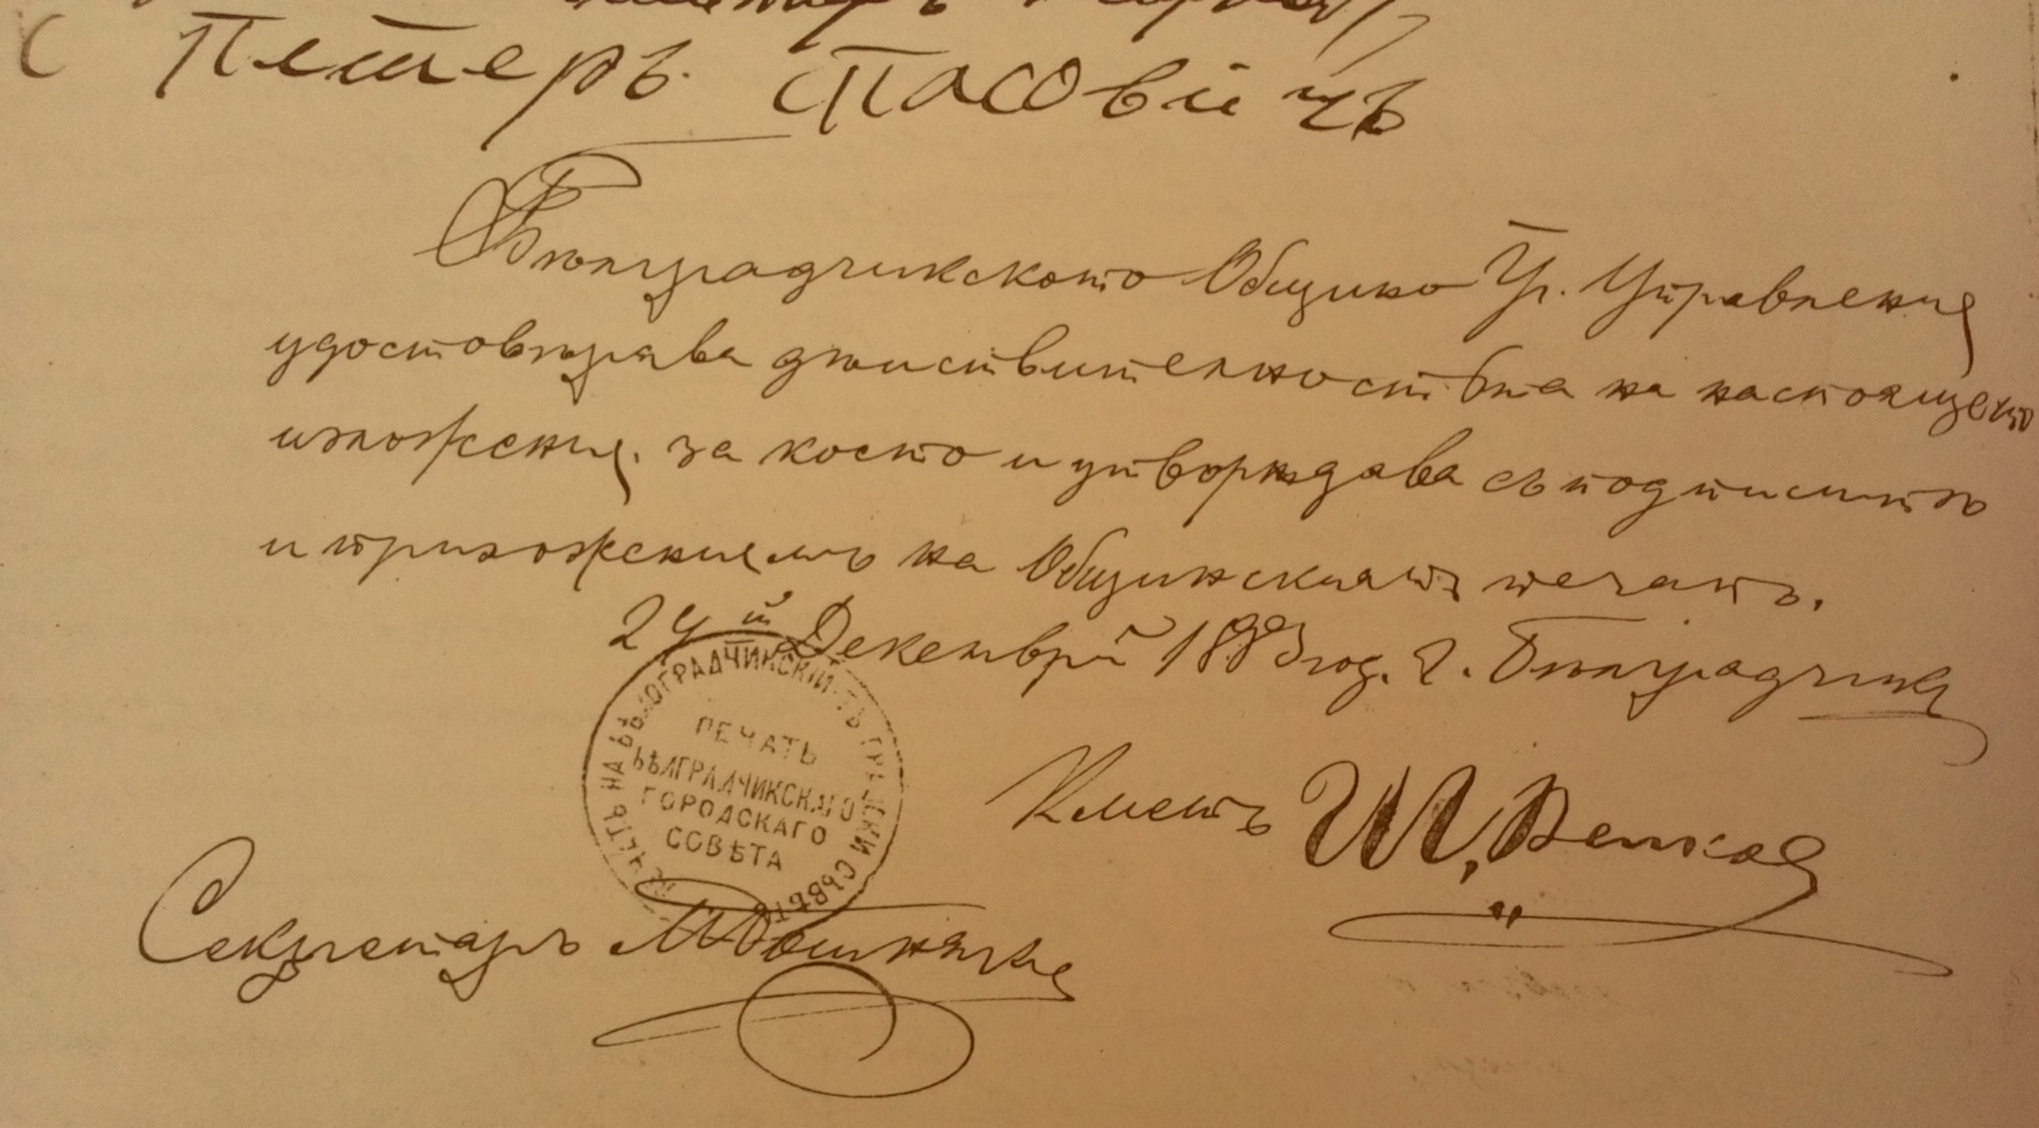 Петеръ Тасовичъ
Бѣлградчикското Общико Гр. Управление
удостовѣрява дѣиствителностьта на настоящето
изложение, за което и утвърждава съ подписитѣ
и приложениемъ на Общинскиятъ печатъ.
24й Декемврий 1883 год. г. Бѣлградчикъ
ПЕЧАТЬ НА БѢЛОГРАДЧИНСКІЙ-ТЪ ГРАДСКИ СЪВѢТЪ
ПЕЧАТЬ
БѢЛГРАДЧИКСКАГО
ГОРОДСКАГО
СОВѢТА
Кметъ
Секретарь